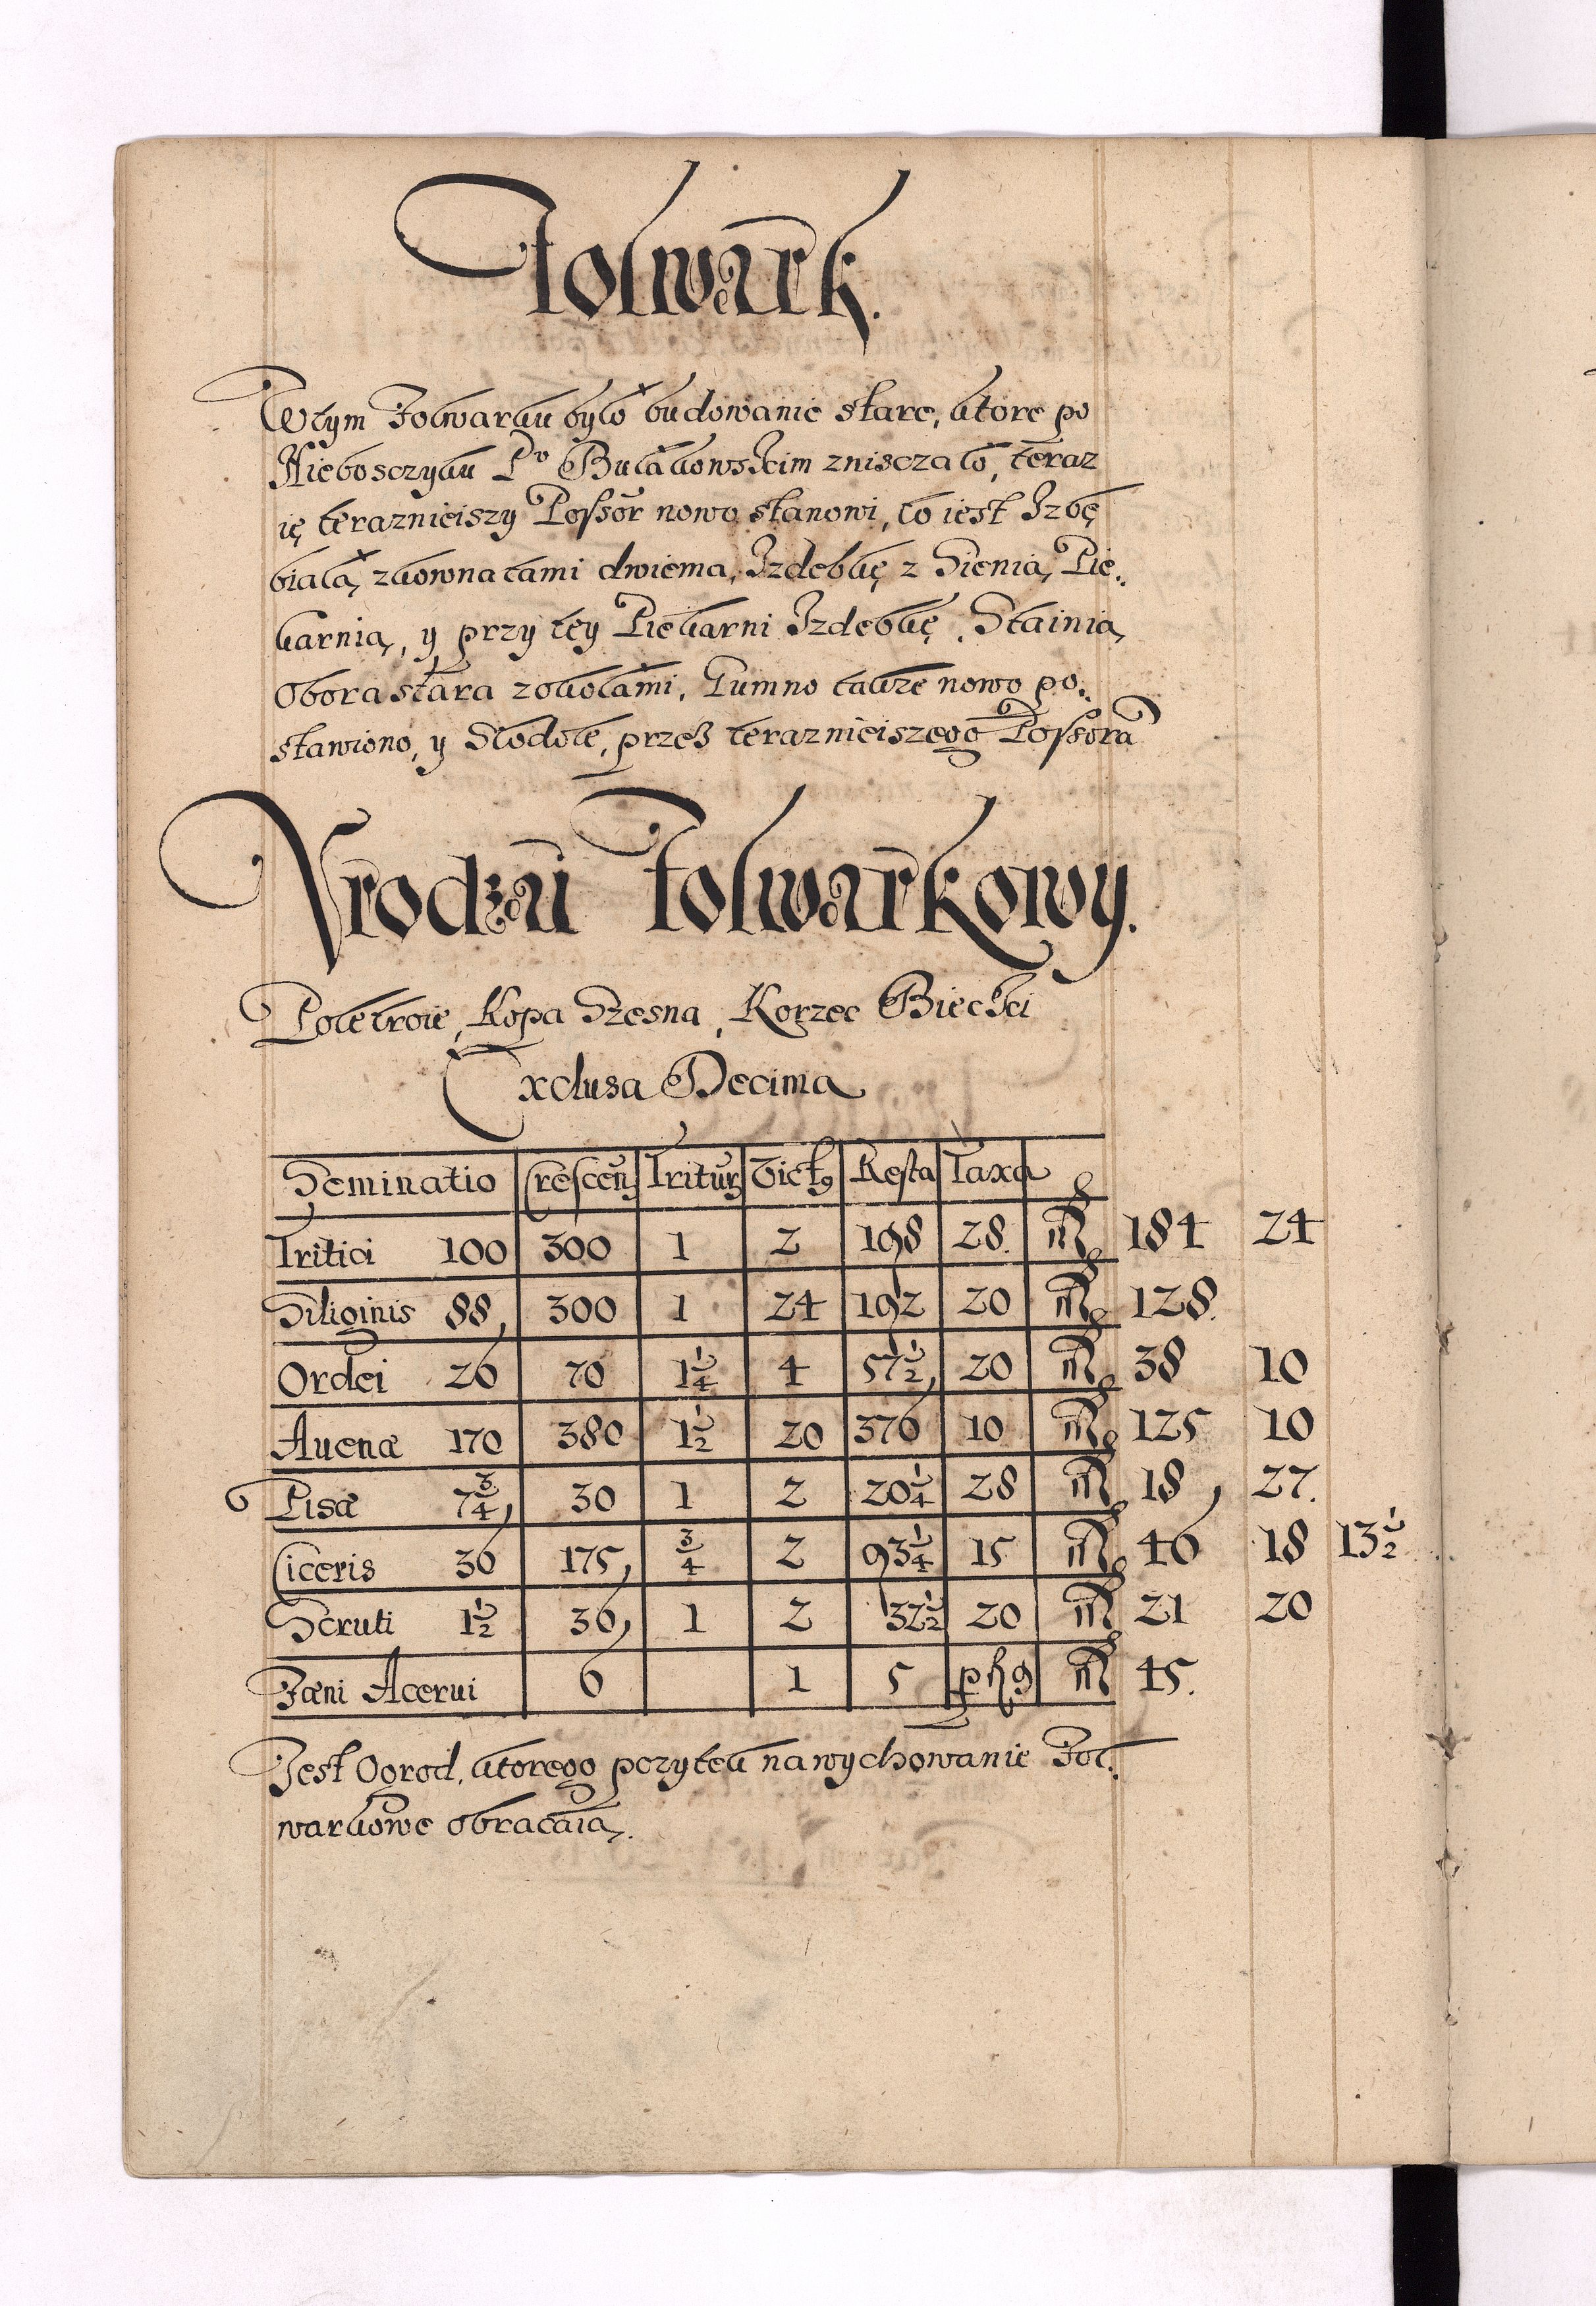 Folwark.
Wtym Folwarku było budowanie stare, ktore po
Niebosczyku Pº Bułakowskim znisczało, teraz
ię teraznieiszy Possor nowo stanowi, to iest Izbę
białą, zkownatami dwiema, Izdebkę z Sienią, Pie„
karnią, y przy tey Piekarni Izdebkę, Stainią,
Obora stara zokołami, Gumno także nowo po„
stawiono, y Stodołę, przez teraznieiszego Possora
Vrodzai Folwarkowy.
Pole troie, Kopa Szesna, Korzec Biecki
Exclusa Decima
Seminatio Crescen Tritur Vict9 Resta Taxa
Tritici 100 300 1 2 198 28. m 184 24
Siliginis 88, 300 1 24 192 20 m 128.
Ordei 26 70 1 1/4 4 57 1/2, 20 m 38 10
Auenæ 170 380 1 1/2 20 376 10 m 125 10
Pisæ 7 3/4, 30 1 2 20 1/4 28 m 18, 27.
Ciceris 36 175, 3/4 2 93 1/4 15 m 46 18 13 1/2
Semti 1 1/2 36, 1 2 32 1/2 20 m 21 20
Fæni Acerui 6 1 5 m 45.
Iest Ogrod, ktorego pozytek na wychowanie Fol„
warkowe obracaią.